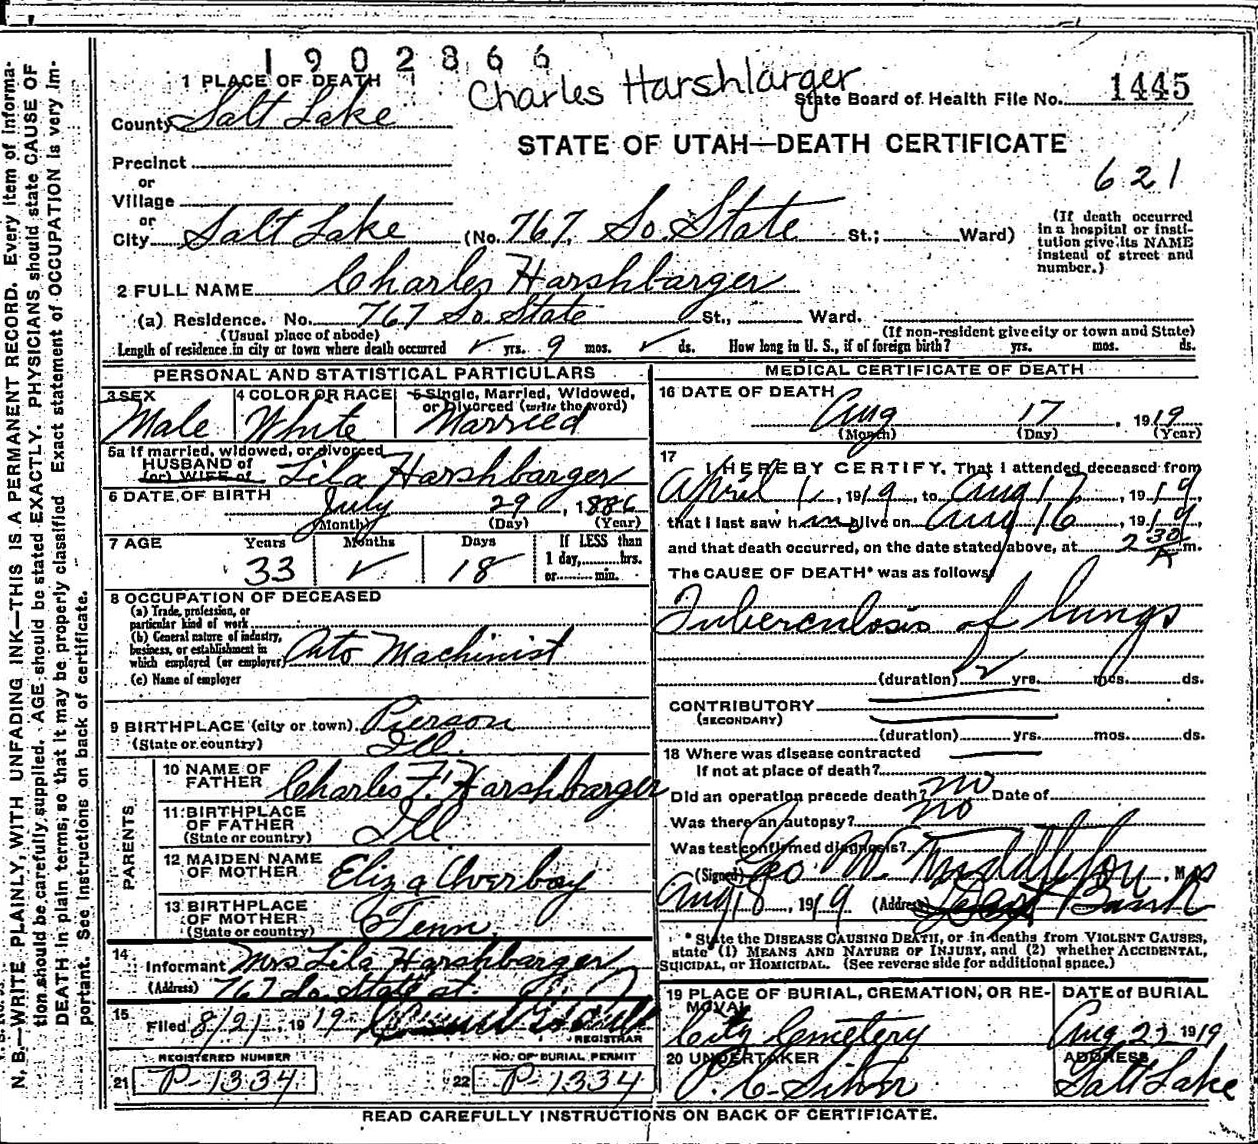 1902866
Charles Harshlarger
1 PLACE OF DEATH
State Board of Health File No. 1445
County Salt Lake
STATE OF UTAH—DEATH CERTIFICATE
Precinct
621
or
Village
or
City Salt Lake (No. 767, So. State St.; Ward)
(If death occurred in a hospital or insti-
tution give its NAME
instead of street and
number.)
2 FULL NAME Charles Harshbarger
(a) Residence. No. 767 So. State St., Ward.
(Usual place of abode) (If non-resident give city or town and State)
Length of residence in city or town where death occurred ✓ yrs. 9 mos. ✓ ds. How long in U. S., if of foreign birth? yrs. mos. ds.
PERSONAL AND STATISTICAL PARTICULARS
3 SEX Male
4 COLOR OR RACE White
5 Single, Married, Widowed,
or Divorced (write the word)
Married
5a If married, widowed, or divorced
HUSBAND of
(or) WIFE of Lila Harshbarger
6 DATE OF BIRTH July 29, 1886
(Month) (Day) (Year)
7 AGE Years 33 Months ✓ Days 18
If LESS than
1 day,......hrs.
or......min.
8 OCCUPATION OF DECEASED
(a) Trade, profession, or
particular kind of work
(b) General nature of industry,
business, or establishment in
which employed (or employer) Auto Machinist
(c) Name of employer
9 BIRTHPLACE (city or town) Pierson
(State or country) Ill.
PARENTS
10 NAME OF
FATHER Charles F. Harshbarger
11 BIRTHPLACE
OF FATHER Ill
(State or country)
12 MAIDEN NAME
OF MOTHER Eliza Overbay
13 BIRTHPLACE
OF MOTHER Tenn.
(State or country)
14
Informant Mrs Lila Harshbarger
(Address) 767 So. State st.
15
Filed 8/21, 1919
REGISTRAR
REGISTERED NUMBER
21 P-1334
NO. OF BURIAL PERMIT
22 P-1334
MEDICAL CERTIFICATE OF DEATH
16 DATE OF DEATH
Aug 17, 1919
(Month) (Day) (Year)
17
I HEREBY CERTIFY, That I attended deceased from
April 1, 1919, to Aug 17, 1919
that I last saw him alive on Aug 16, 1919
and that death occurred, on the date stated above, at 2 30 A m.
The CAUSE OF DEATH* was as follows:
Tuberculosis of lungs
(duration) 2 yrs. mos. ds.
CONTRIBUTORY
(SECONDARY)
(duration) yrs. mos. ds.
18 Where was disease contracted
if not at place of death?
Did an operation precede death? no Date of
Was there an autopsy? no
Was test confirmed diagnosis?
(Signed) Geo. W. Middleton, M D
Aug 18, 1919 (Address)
* State the DISEASE CAUSING DEATH, or in deaths from VIOLENT CAUSES,
state (1) MEANS AND NATURE OF INJURY, and (2) whether ACCIDENTAL,
SUICIDAL, or HOMICIDAL. (See reverse side for additional space.)
19 PLACE OF BURIAL, CREMATION, OR RE-
MOVAL
City Cemetery
DATE of BURIAL
Aug 22 1919
20 UNDERTAKER
ADDRESS
Salt Lake
READ CAREFULLY INSTRUCTIONS ON BACK OF CERTIFICATE.
N. B.—WRITE PLAINLY, WITH UNFADING INK—THIS IS A PERMANENT RECORD. Every item of informa-
tion should be carefully supplied. AGE should be stated EXACTLY. PHYSICIANS should state CAUSE OF
DEATH in plain terms, so that it may be properly classified. Exact statement of OCCUPATION is very im-
portant. See instructions on back of certificate.